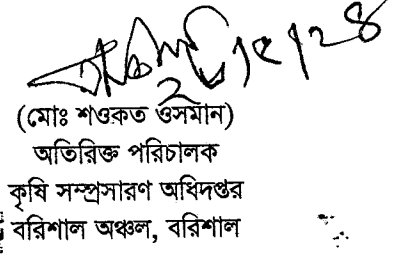 (মোঃ শওকত ওসমান)
অতিরিক্ত পরিচালক
কৃষি সম্প্রসারণ অধিদপ্তর
বরিশাল অঞ্চল, বরিশাল